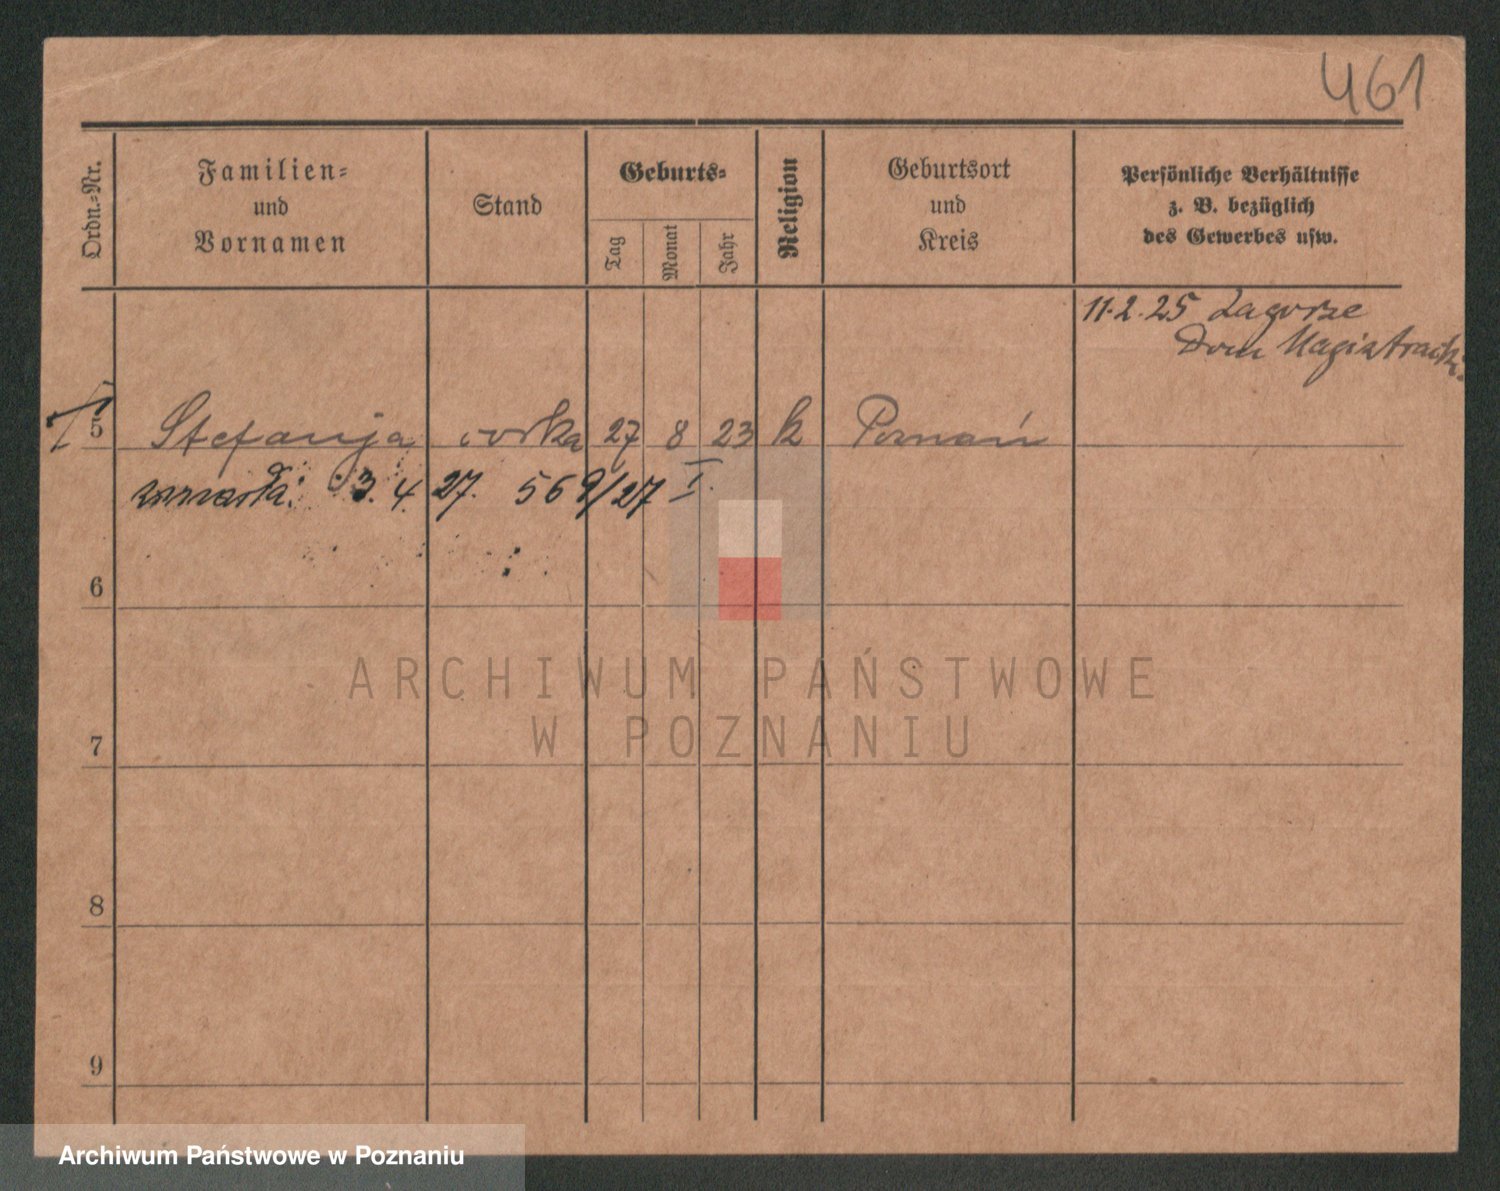 461
Ordn.-Nr.
Familien-
und
Vornamen
Stand
Geburts-
Tag
Monat
Jahr
Religion
Geburtsort
und
Kreis
Persönliche Verhältnisse
z. B. bezüglich
des Gewerbes usw.
11.2.25 Zagorze
Dom Magistracki
5 Stefanja córka 27 8 23 k Poznań
zmarła 3. 4. 27. 569/27 I.
6
7
8
9
ARCHIWUM PAŃSTWOWE
W POZNANIU
Archiwum Państwowe w Poznaniu